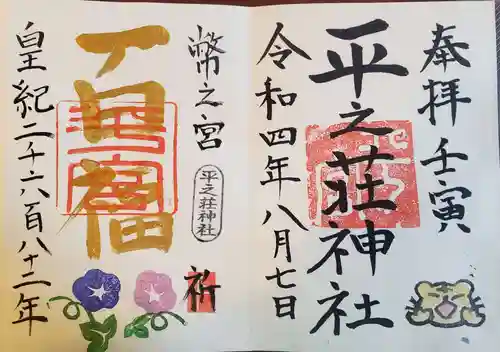 奉拝 壬寅
平之荘神社
令和四年八月七日
幣之宮
平之荘神社
祈
皇紀二千六百八十二年